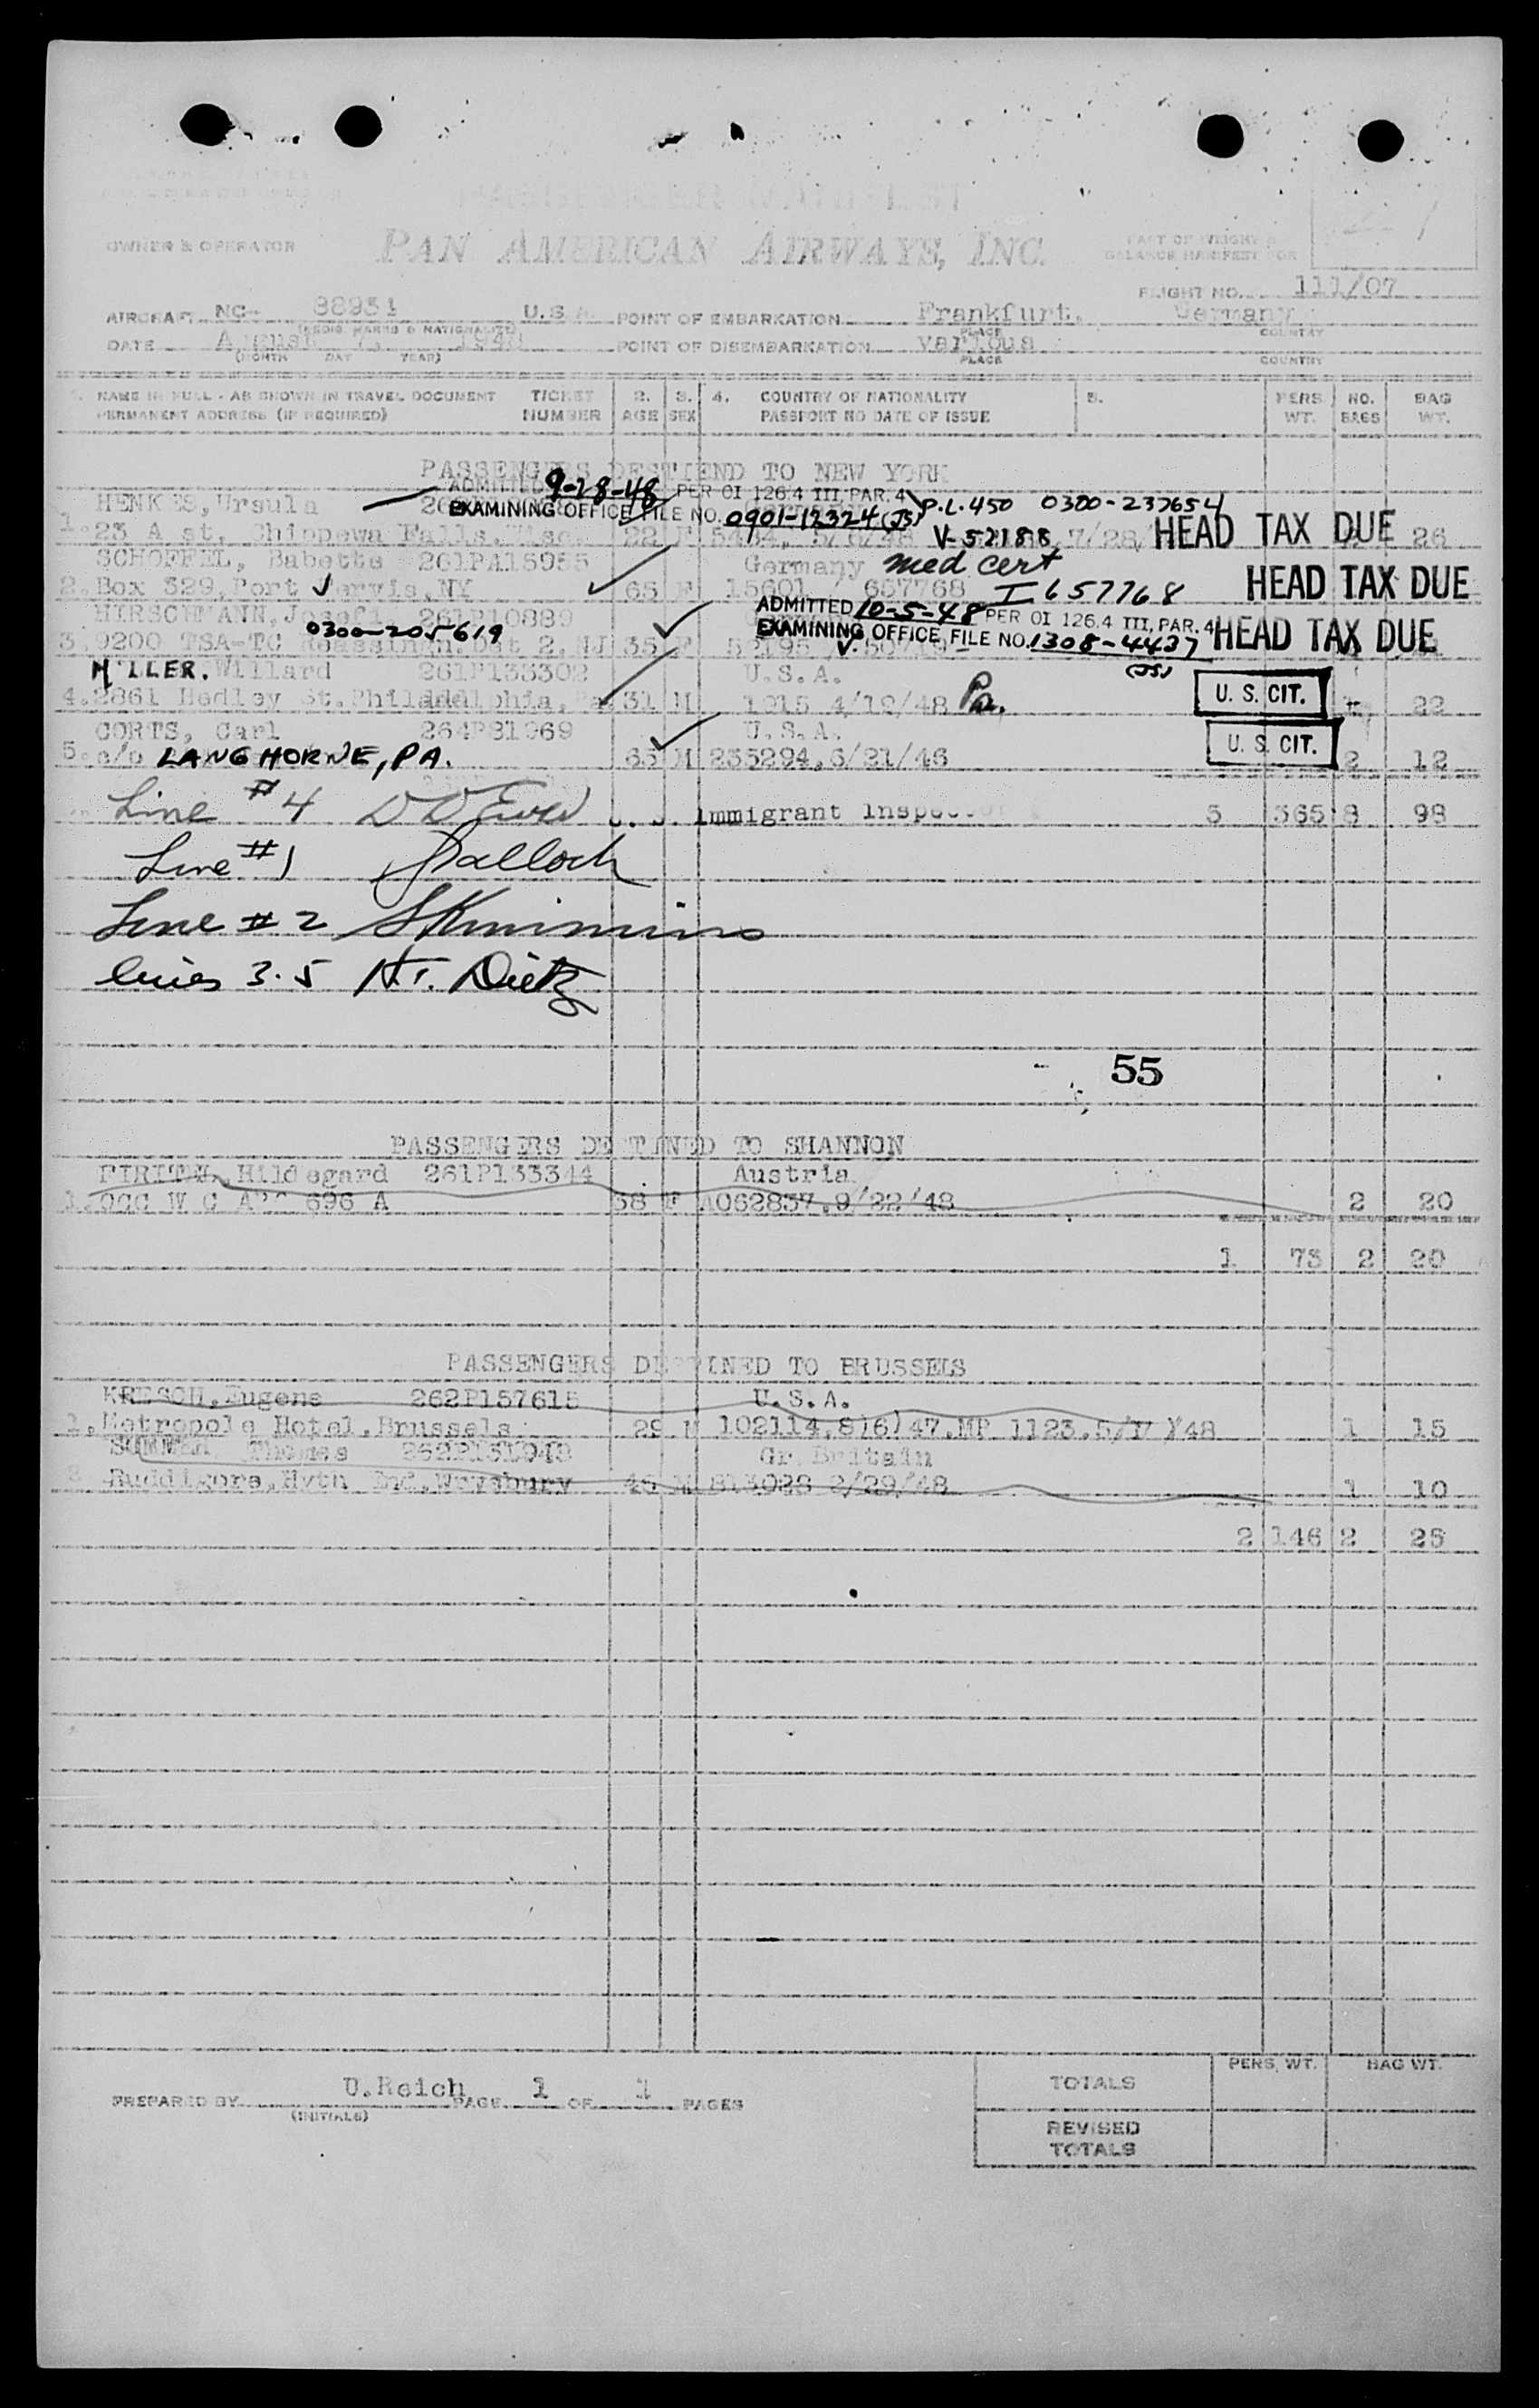 PASSENGER MANIFEST
OWNER & OPERATOR PAN AMERICAN AIRWAYS, INC. PART OF WEIGHT &
BALANCE MANIFEST FOR
FLIGHT NO. 111/07
AIRCRAFT NC- U.S.A. POINT OF EMBARKATION Frankfurt, Germany
(REGIS. MARKS & NATIONALITY) PLACE COUNTRY
DATE August 7, 1948 POINT OF DISEMBARKATION various
(MONTH DAY YEAR) PLACE COUNTRY
1. NAME IN FULL - AS SHOWN IN TRAVEL DOCUMENT TICKET 2. 3. 4. COUNTRY OF NATIONALITY 5. PERS. NO. BAG
PERMANENT ADDRESS (IF REQUIRED) NUMBER AGE SEX PASSPORT NO DATE OF ISSUE WT. BAGS WT.
PASSENGERS DESTIEND TO NEW YORK
ADMITTED 9-28-48 PER OI 126.4 III, PAR. 4 P.L. 450 0300-237654
HENKES, Ursula
EXAMINING OFFICE FILE NO. 0901-12324 (JS)
1. 23 A st, Chippewa Falls, Wisc. 22 F 5484, 5/6/48 V-52188 7/28/ HEAD TAX DUE 26
SCHOFFEL, Babette 261PA15955 Germany med cert
2. Box 329, Port Jervis, NY 65 F 15601 / 657768 I 657768 HEAD TAX DUE
HIRSCHMANN, Josefi 261P10889 ADMITTED 10-5-48 PER OI 126.4 III, PAR. 4
0300-205619 EXAMINING OFFICE FILE NO. 1308-4437 HEAD TAX DUE
3. 9200 TSA-TC Reassignm. Det 2, NJ 35 F 52195 V.
(JS)
MILLER, Willard 261P133302 U.S.A.
4. 2861 Hedley St. Philadelphia, Pa 31 M 1915 4/19/48 Pa. U. S. CIT. 22
CORTS, Carl 264P81969 U.S.A.
5. c/o LANGHORNE, PA. 65 M 235294, 6/21/46 U. S. CIT. 2 12
Line #4 U. S. Immigrant Inspector 5 365 8 98
Line #1
Line #2 SKimmins
lines 3.5 H.T. Dietz
55
PASSENGERS DESTINED TO SHANNON
Hildegard 261P133344 Austria
1. OCC W C APO 696 A 38 F A062837, 9/22/48 2 20
1 73 2 20
PASSENGERS DESTINED TO BRUSSELS
KRESCH, Eugene 262P157615 U.S.A.
1. Metropole Hotel, Brussels 29 M 102114, 8)6)47, MP 1123, 5/17)48 1 15
Thomas Gr. Britain
2. Ruddigore, Hyth End, Wraysbury 46 M 2/29/48 1 10
2 146 2 25
PREPARED BY U.Reich PAGE 1 OF 1 PAGES
(INITIALS)
PERS. WT. BAG WT.
TOTALS
REVISED
TOTALS